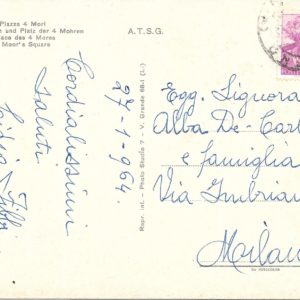 Piazza 4 Mori
und Platz der 4 Mohren
Place des 4 Mores
Moor's Square
A.T.S.G.
Cordialissimi
saluti
27-1-964.
Repr. int. - Photo Stadio 7 - V. Grande
Egg. Signora
Alba De-Car
e famiglia
Via Imbrian
Milan